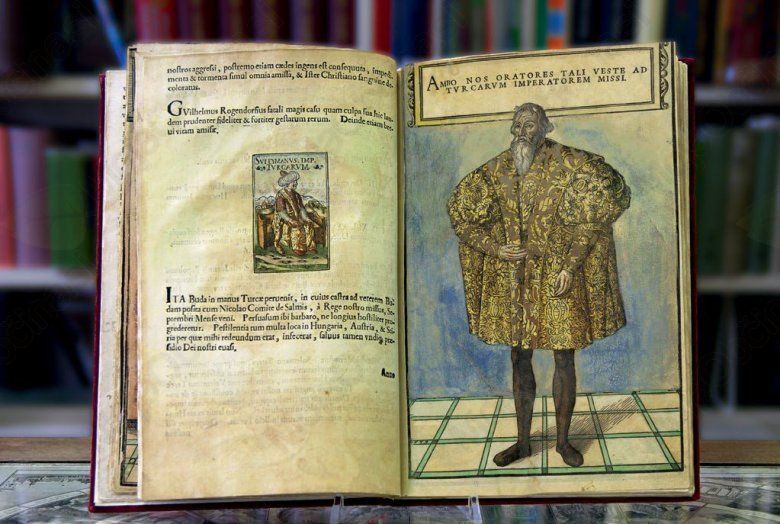 nostros aggressi, postremo etiam cædes ingens est consequuta, impedi-
menta & tormenta simul omnia amissa, & Ister Christiano sanguine de-
coloratus.
GVilhelmus Rogendorfius fatali magis casu quam culpa sua hic lau-
dem prudenter fideliter & fortiter gestarum rerum. Deinde etiam bre-
vi vitam amisit.
SVLEIMANVS. IMP.
TVRCARVM.
ITA Buda in manus Turcæ pervenit, in cuius castra ad veterem Bu-
dam posita cum Nicolao Comite de Salmis, à Rege nostro missus, Se-
ptembri Mense veni. Persuasum ibi barbaro, ne longius hostiliter pro-
grederetur. Pestilentia tum multa loca in Hungaria, Austria, & Sti-
ria per quæ misti redeundum erat, infecerat, salvus tamen vndiq; præ-
sidio Dei nostri euasi.
Anno
AMBO NOS ORATORES TALI VESTE AD
TVRCARVM IMPERATOREM MISSI.